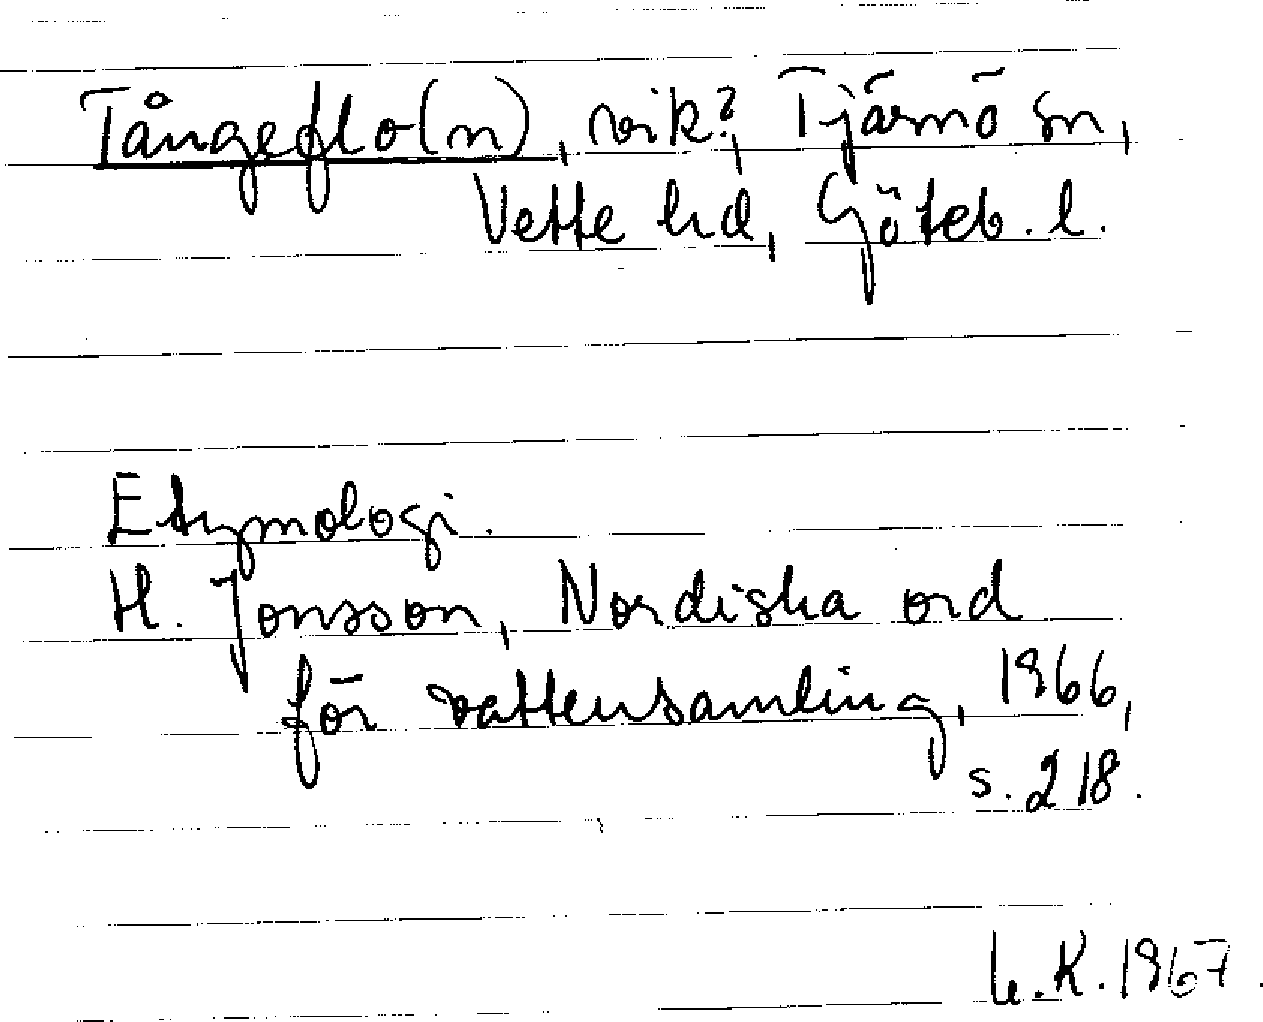 Tångeflo(n), vik?, Tjärnö sn,
Vette hd, Göteb. l.
Etymologi.
H. Jonsson, Nordiska ord
för vattensamling, 1966,
s. 218.
L.K. 1967.